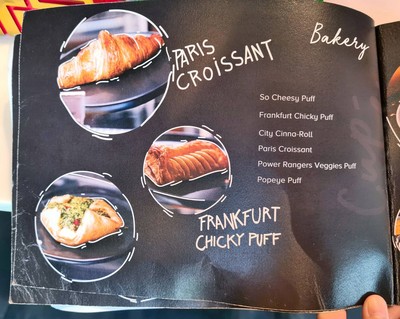 PARIS
CROISSANT
Bakery
So Cheesy Puff
Frankfurt Chicky Puff
City Cinna-Roll
Paris Croissant
Power Rangers Veggies Puff
Popeye Puff
FRANKFURT
CHICKY PUFF